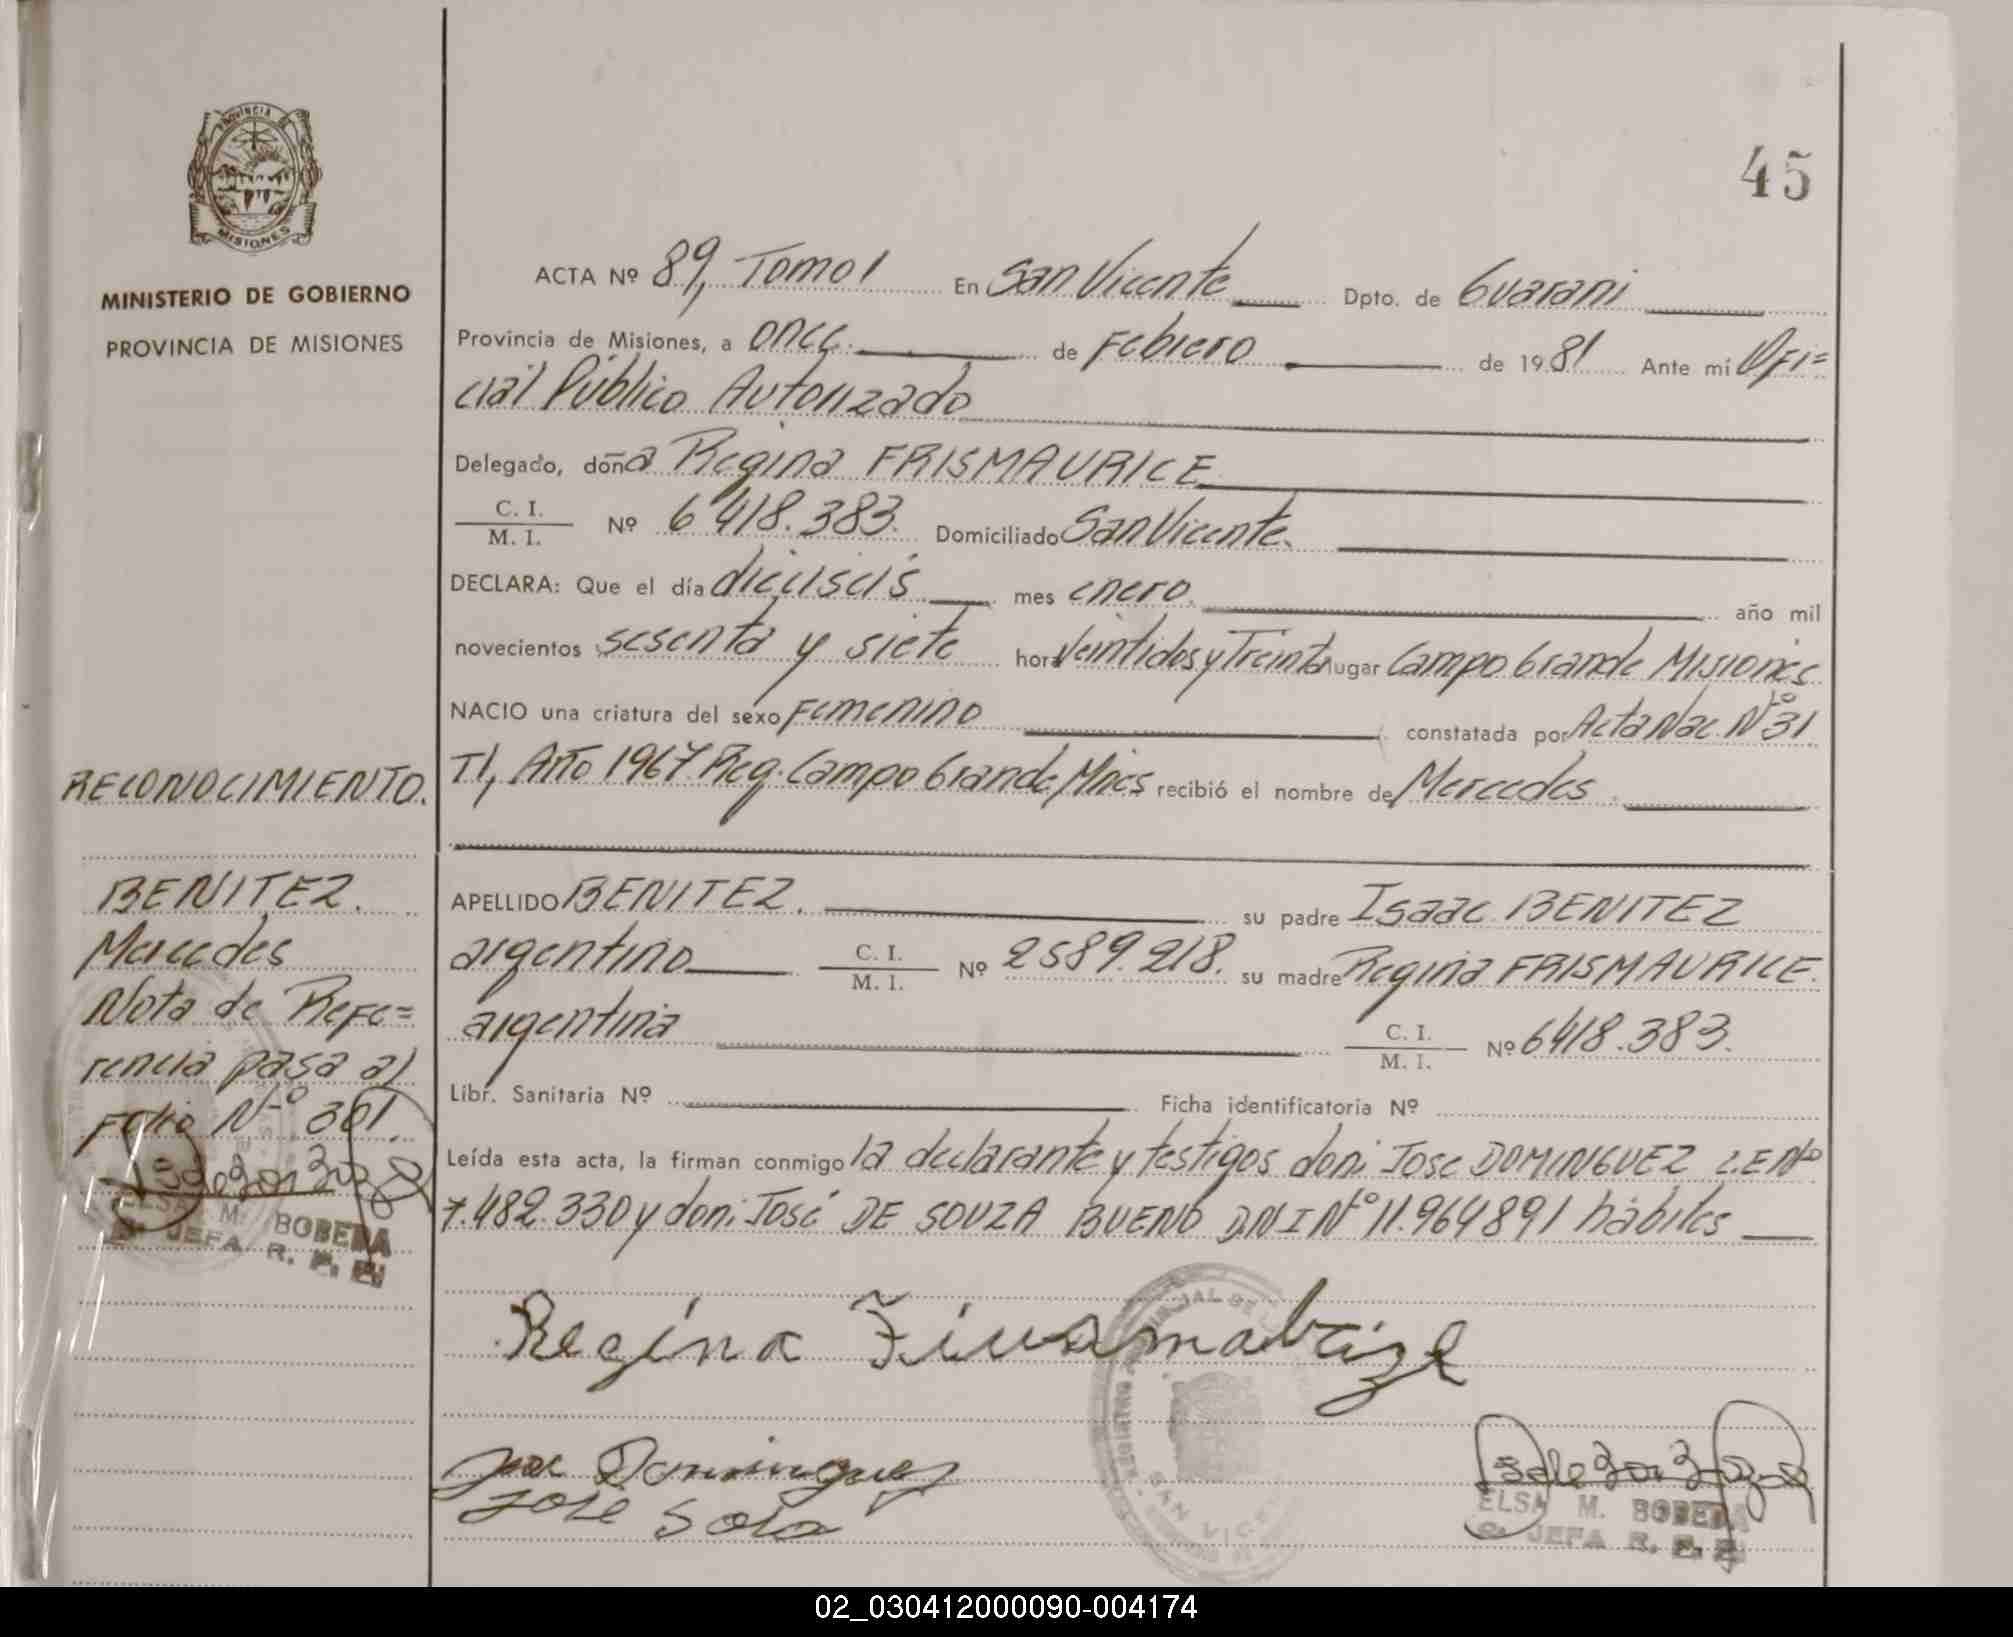 PROVINCIA DE
MISIONES
MINISTERIO DE GOBIERNO
PROVINCIA DE MISIONES
45
ACTA Nº 89, Tomo 1 En San Vicente Dpto. de Guarani
Provincia de Misiones, a once. de Febrero de 1981 Ante mi Ofi=
cial Público Autorizado
Delegado, doña Regina FRISMAURICE
C. I.
M. I. Nº 6418.383. Domiciliado San Vicente.
DECLARA: Que el día dieciseis mes enero. año mil
novecientos sesenta y siete hora Veintidos y Treinta lugar Campo Grande Misiones
NACIO una criatura del sexo Femenino constatada por Acta Nac. Nº 31
T1, Año 1967 Reg. Campo Grande, Mnes recibió el nombre de Mercedes
RECONOCIMIENTO.
BENITEZ.
Mercedes
Nota de Refe=
rencia pasa al
Folio Nº 301.
ELSA M. BOBEDA
JEFA R. P.
APELLIDO BENITEZ. su padre Isaac BENITEZ
argentino C. I.
M. I. Nº 2589.218. su madre Regina FRISMAURICE.
argentina C. I.
M. I. Nº 6418.383.
Libr. Sanitaria Nº Ficha identificatoria Nº
Leída esta acta, la firman conmigo la declarante y testigos don: Jose DOMINGUEZ L.E Nº
7.482.330 y don: José DE SOUZA BUENO DNI Nº 11.964891 hábiles
Regina
Jose Dominguez
José
SAN VICENTE
ELSA M. BOBEDA
JEFA R. P.
02_030412000090-004174